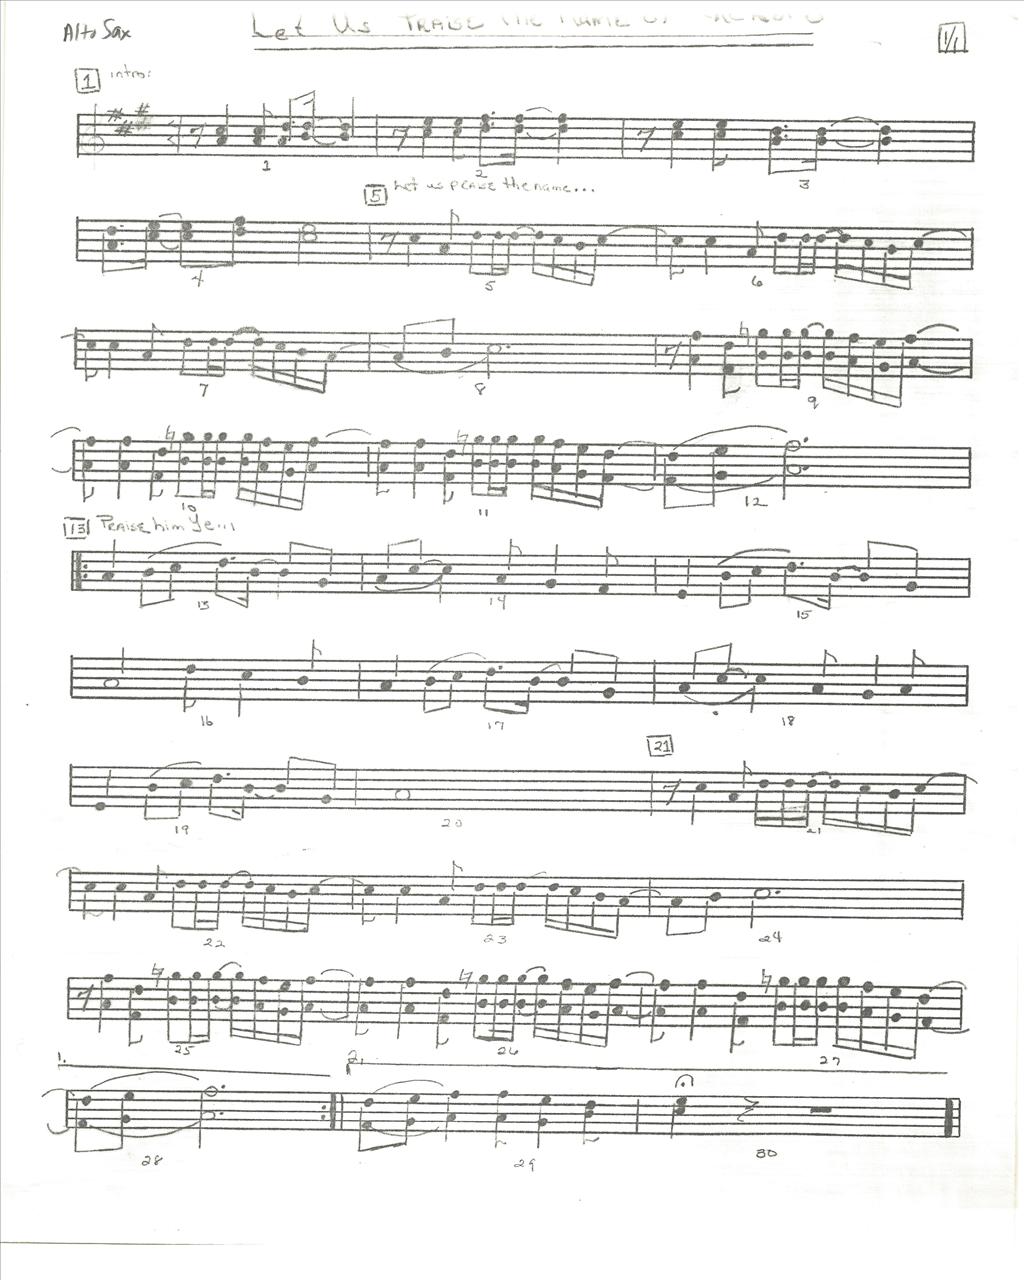 Alto Sax
Let Us PRAISE The Name Of
1/1
1 intro:
1 2 3
5 Let us PRAISE the name...
4 5 6
7 8 9
10 11 12
13 PRAISE him Ye...
13 14 15
16 17 18
21
19 20 21
22 23 24
25 26 27
1. 2.
28 29 30